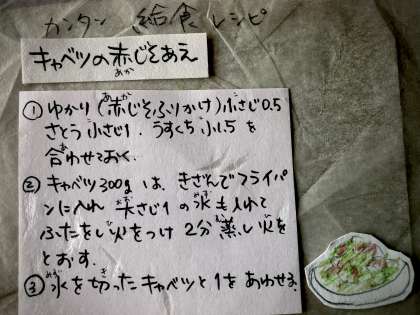 カンタン 給食レシピ
キャベツの赤じそあえ
あか
あか
① ゆかり(赤じそふりかけ)小さじ0.5
さとう小さじ1. うすくち小1.5を
あ
合わせておく.
② キャベツ300gは、きざんでフライパ
おお みず い
ンに入れ 大さじ1の水も入れて
ひ ぷん む ひ
ふたをし火をつけ 2分蒸し火を
とおす.
みず き
③ 水を切ったキャベツと1をあわせる.